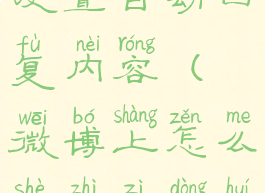 设置自动回
fù nèi róng
复内容(
wēi bó shàng zěn me
微博上怎么
shè zhì zì dòng huí